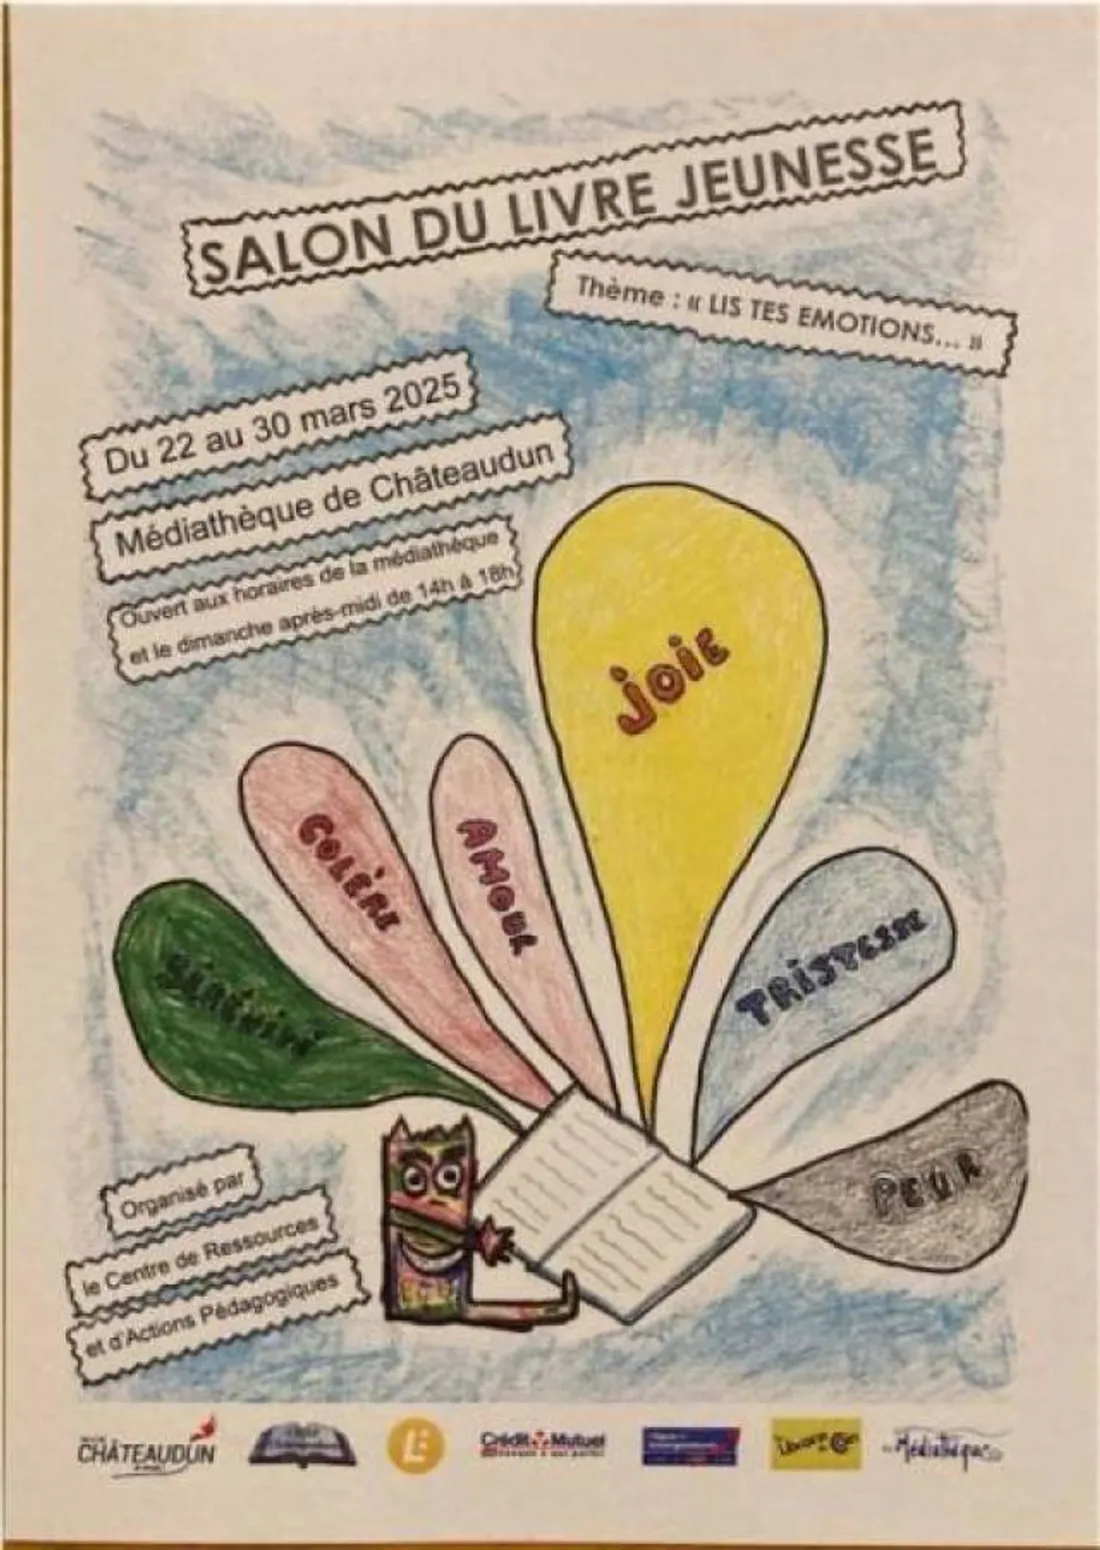 SALON DU LIVRE JEUNESSE
Thème : « LIS TES EMOTIONS... »
Du 22 au 30 mars 2025
Médiathèque de Châteaudun
Ouvert aux horaires de la médiathèque
et le dimanche après-midi de 14h à 18h
JOIE
COLÈRE
AMOUR
SÉRÉNITÉ
TRISTESSE
PEUR
Organisé par
le Centre de Ressources
et d'Actions Pédagogiques
CHÂTEAUDUN
LE
Crédit Mutuel
Médiathèque